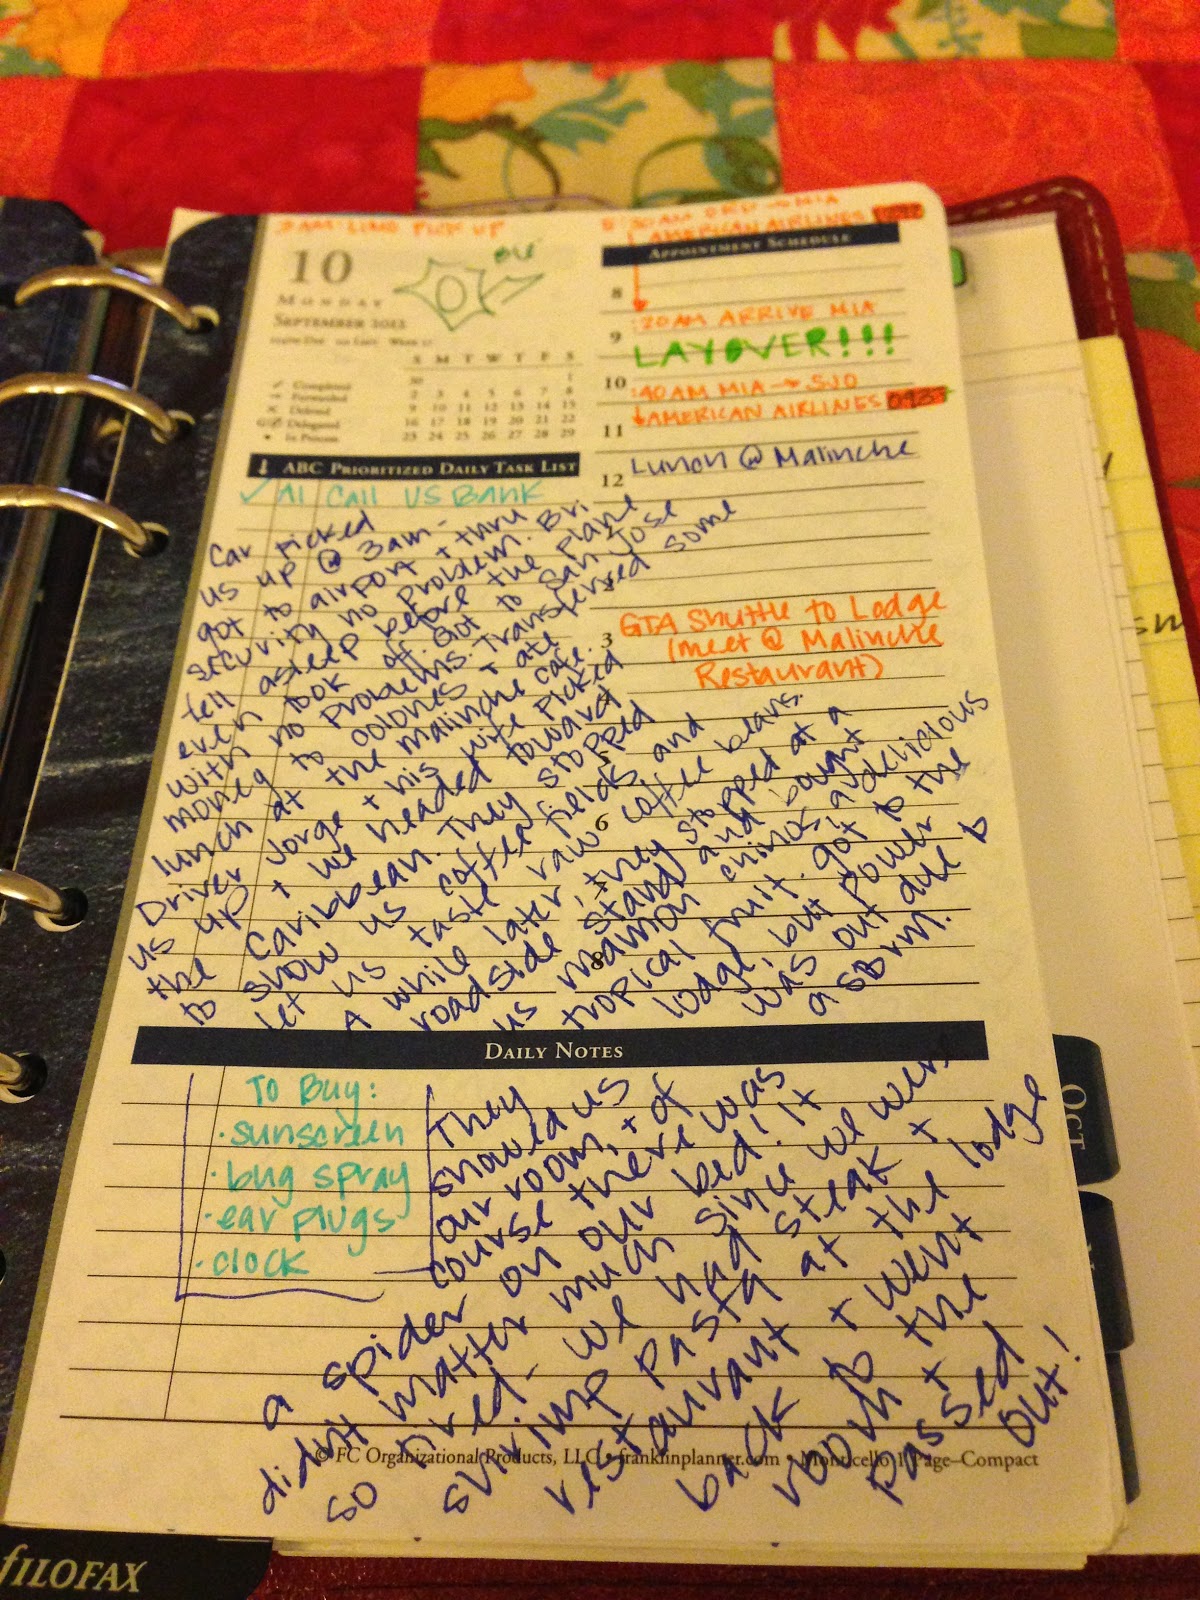 3AM LIMO PICK UP
AMERICAN AIRLINES
10
MONDAY
SEPTEMBER 2012
S M T W T F S
30 1
2 3 4 5 6 7 8
9 10 11 12 13 14 15
16 17 18 19 20 21 22
23 24 25 26 27 28 29
Completed
Forwarded
Deleted
Delegated
In Process
APPOINTMENT SCHEDULE
8
:20AM ARRIVE MIA
9
LAYOVER!!!
10
:40AM MIA → SJO
AMERICAN AIRLINES
11
Lunch @ Malinche
12
3
GTA Shuttle to Lodge
(meet @ Malinche
Restaurant)
5
6
8
↓ ABC PRIORITIZED DAILY TASK LIST
✓ A1 CALL US BANK
Car picked
us up @ 3am -
got to airport + thru
security no problem. Bri
fell asleep before the plane
even took off. Got to San Jose
with no problems. Transferred some
money to colones + ate
lunch at the malinche cafe.
Driver Jorge + his wife picked
us up + we headed toward
the Caribbean. They stopped
to show us coffee fields and
let us taste raw coffee beans.
A while later, they stopped at a
roadside stand and bought
us mamon chinos, a delicious
tropical fruit. Got to the
lodge, but power
was out due to
a storm.
DAILY NOTES
To Buy:
· sunscreen
· bug spray
· ear plugs
· clock
They
showed us
our room, + of
course there was
a spider on our bed! It
didn't matter much since we were
so tired - we had steak +
shrimp pasta at the lodge
restaurant + went
back to the
room + passed
out!
© FC Organizational Products, LLC • franklinplanner.com • Monticello 1 Page–Compact
OCT
fILOFAX